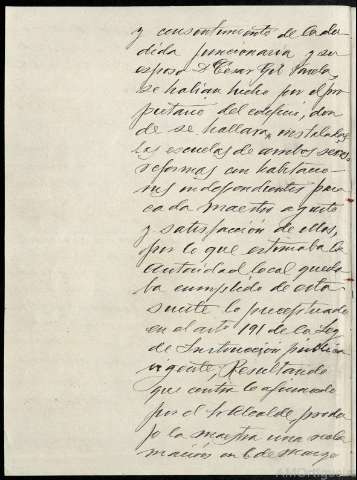 y consentimiento de la alu-
dida funcionaria y su
esposo Dn César Gil Varela,
se habian hecho por el pro
pietario del edificio, don
de se hallaran instaladas
las escuelas de ambos sexos,
reformas con habitacio-
nes independientes para
cada maestro a gusto
y satisfacción de ellos,
por lo que estimaba la
autoridad local queda-
ba cumplido de esta
suerte lo preceptuado
en el arto 191 de la Ley
de Instrucción pública
vigente, Resultando
que contra lo afirmado
por el Sr Alcalde produ-
jo la maestra una recla
mación en 6 de Marzo
AMOrtigueira